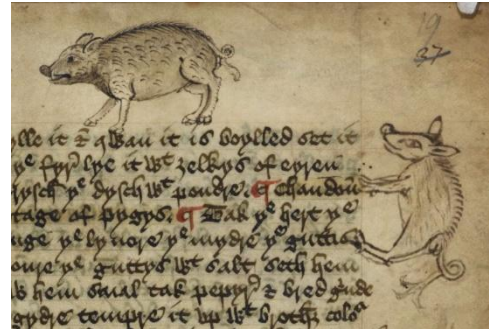 19
37
ylle it & qwan it is boylled set it
yᵉ fyrʳ lye it wᵗ ȝelkys of eyren
rysch yᵉ dysch wᵗ poudre. ¶ chaudon
tage of pygys. ¶ Tak yᵉ hert yᵉ
uge yᵉ lyuore yᵉ mydre yᵉ guttis
oure yᵉ guttys wᵗ salt seth hem
hem smal tak pepyr & bred gude
gydre tempre it vp wᵗ broth colᵒ